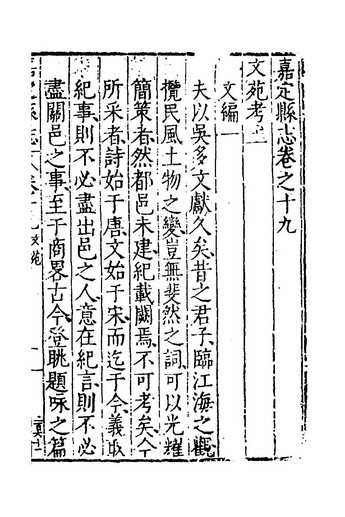 嘉定縣志卷之十九
文苑考二
文編一
夫以吳多文獻久矣昔之君子臨江海之觀
攬民風土物之變豈無斐然之詞可以光耀
簡策者然都邑未建紀載闕焉不可考矣今
所采者詩始于唐文始于宋而迄于今義取
紀事則不必盡出邑之人意在紀言則不必
盡關邑之事至于商畧古今登眺題咏之篇
卷十九文苑